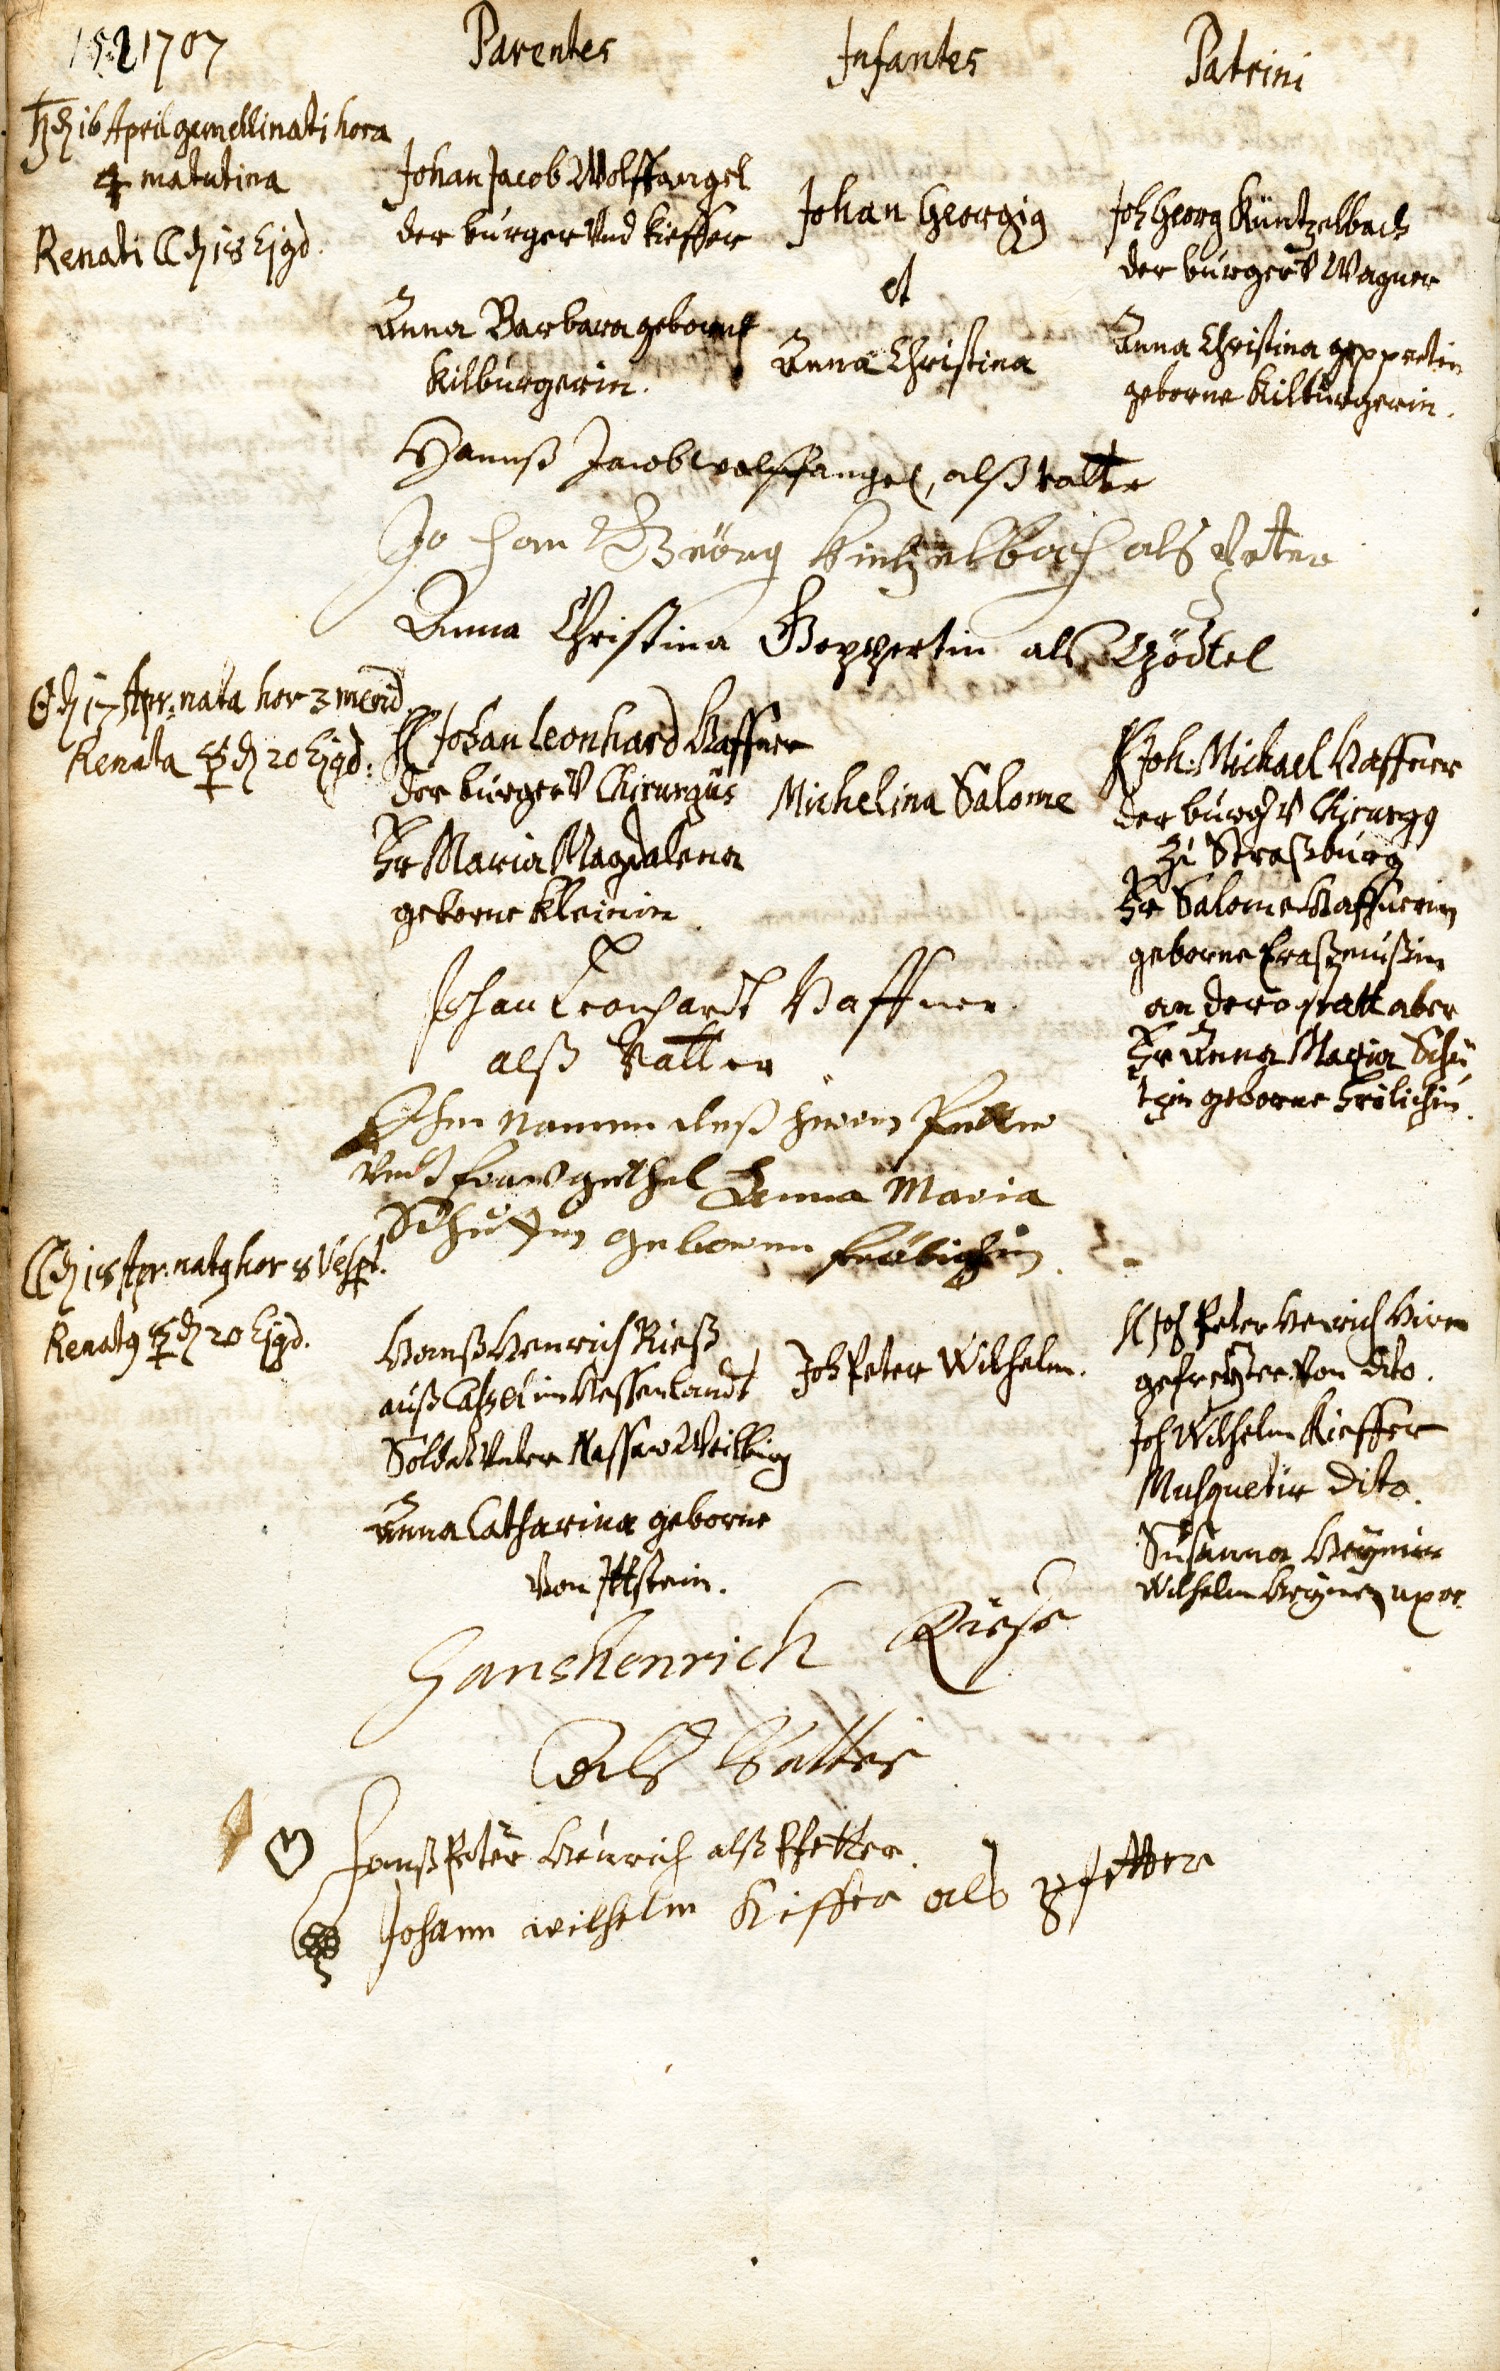 1707 Parentes Infantes Patrini
♄ d 16 April gemelli nati hora
4 matutina
Renati ☾ d 18 Ejgd.
Johan Jacob Wolffangel
der burger und kieffer
Anna Barbara geborne
Kilburgerin.
Johan Georgig
et
Anna Christina
Joh Georg Küntzelbach
der burger v Wagner
Anna Christina geppertin
geborne Kilburgerin.
Hannß Jacob wolffangel, alß vatter
Johan Georg kintzelbach als Peter
Anna Christina Geppertin als Göttel
☉ d 17 Apr: nata hor 3 merid.
Renata ☿ d 20 Ejgd:
H Johan Leonhard Haffner
der burger v Chirurgus
Fr Maria Magdalena
geborne Kleinin
Michelina Salome
H Joh. Michael Haffner
der burger v Chirurg9
zu Straßburg
Fr Salome Haffnerin
geborne Eraßmußin
an dero statt aber
Fr Anna Maria Schü
tzin geborne Frölichin.
Johan Leonhardt Haffner
alß Vatter
In namen deß herrn Petter
undt fraw gethel Anna Maria
Schützin geborene frölichin.
☾ d 18 Apr. nat9 hor 8 Vesp.
Renat9 ☿ d 20 Ejgd.
Hanß Henrich Rieß
auß Caßel im Hessenlandt
Soldat unter Nassaw Weilburg
Anna Catharina geborne
von Ittstein.
Joh Peter Wilhelm.
H Joh Peter Henrich Hiren
gefreyter von dito.
Joh Wilhelm Kieffer
Musquetir dito.
Susanna Heymin
Wilhelm Heymen uxor.
Hans Henrich Riese
als Vatter
Hanß Peter Henrich alß Pfetter.
Johann wilhelm Kiffer als pfetter